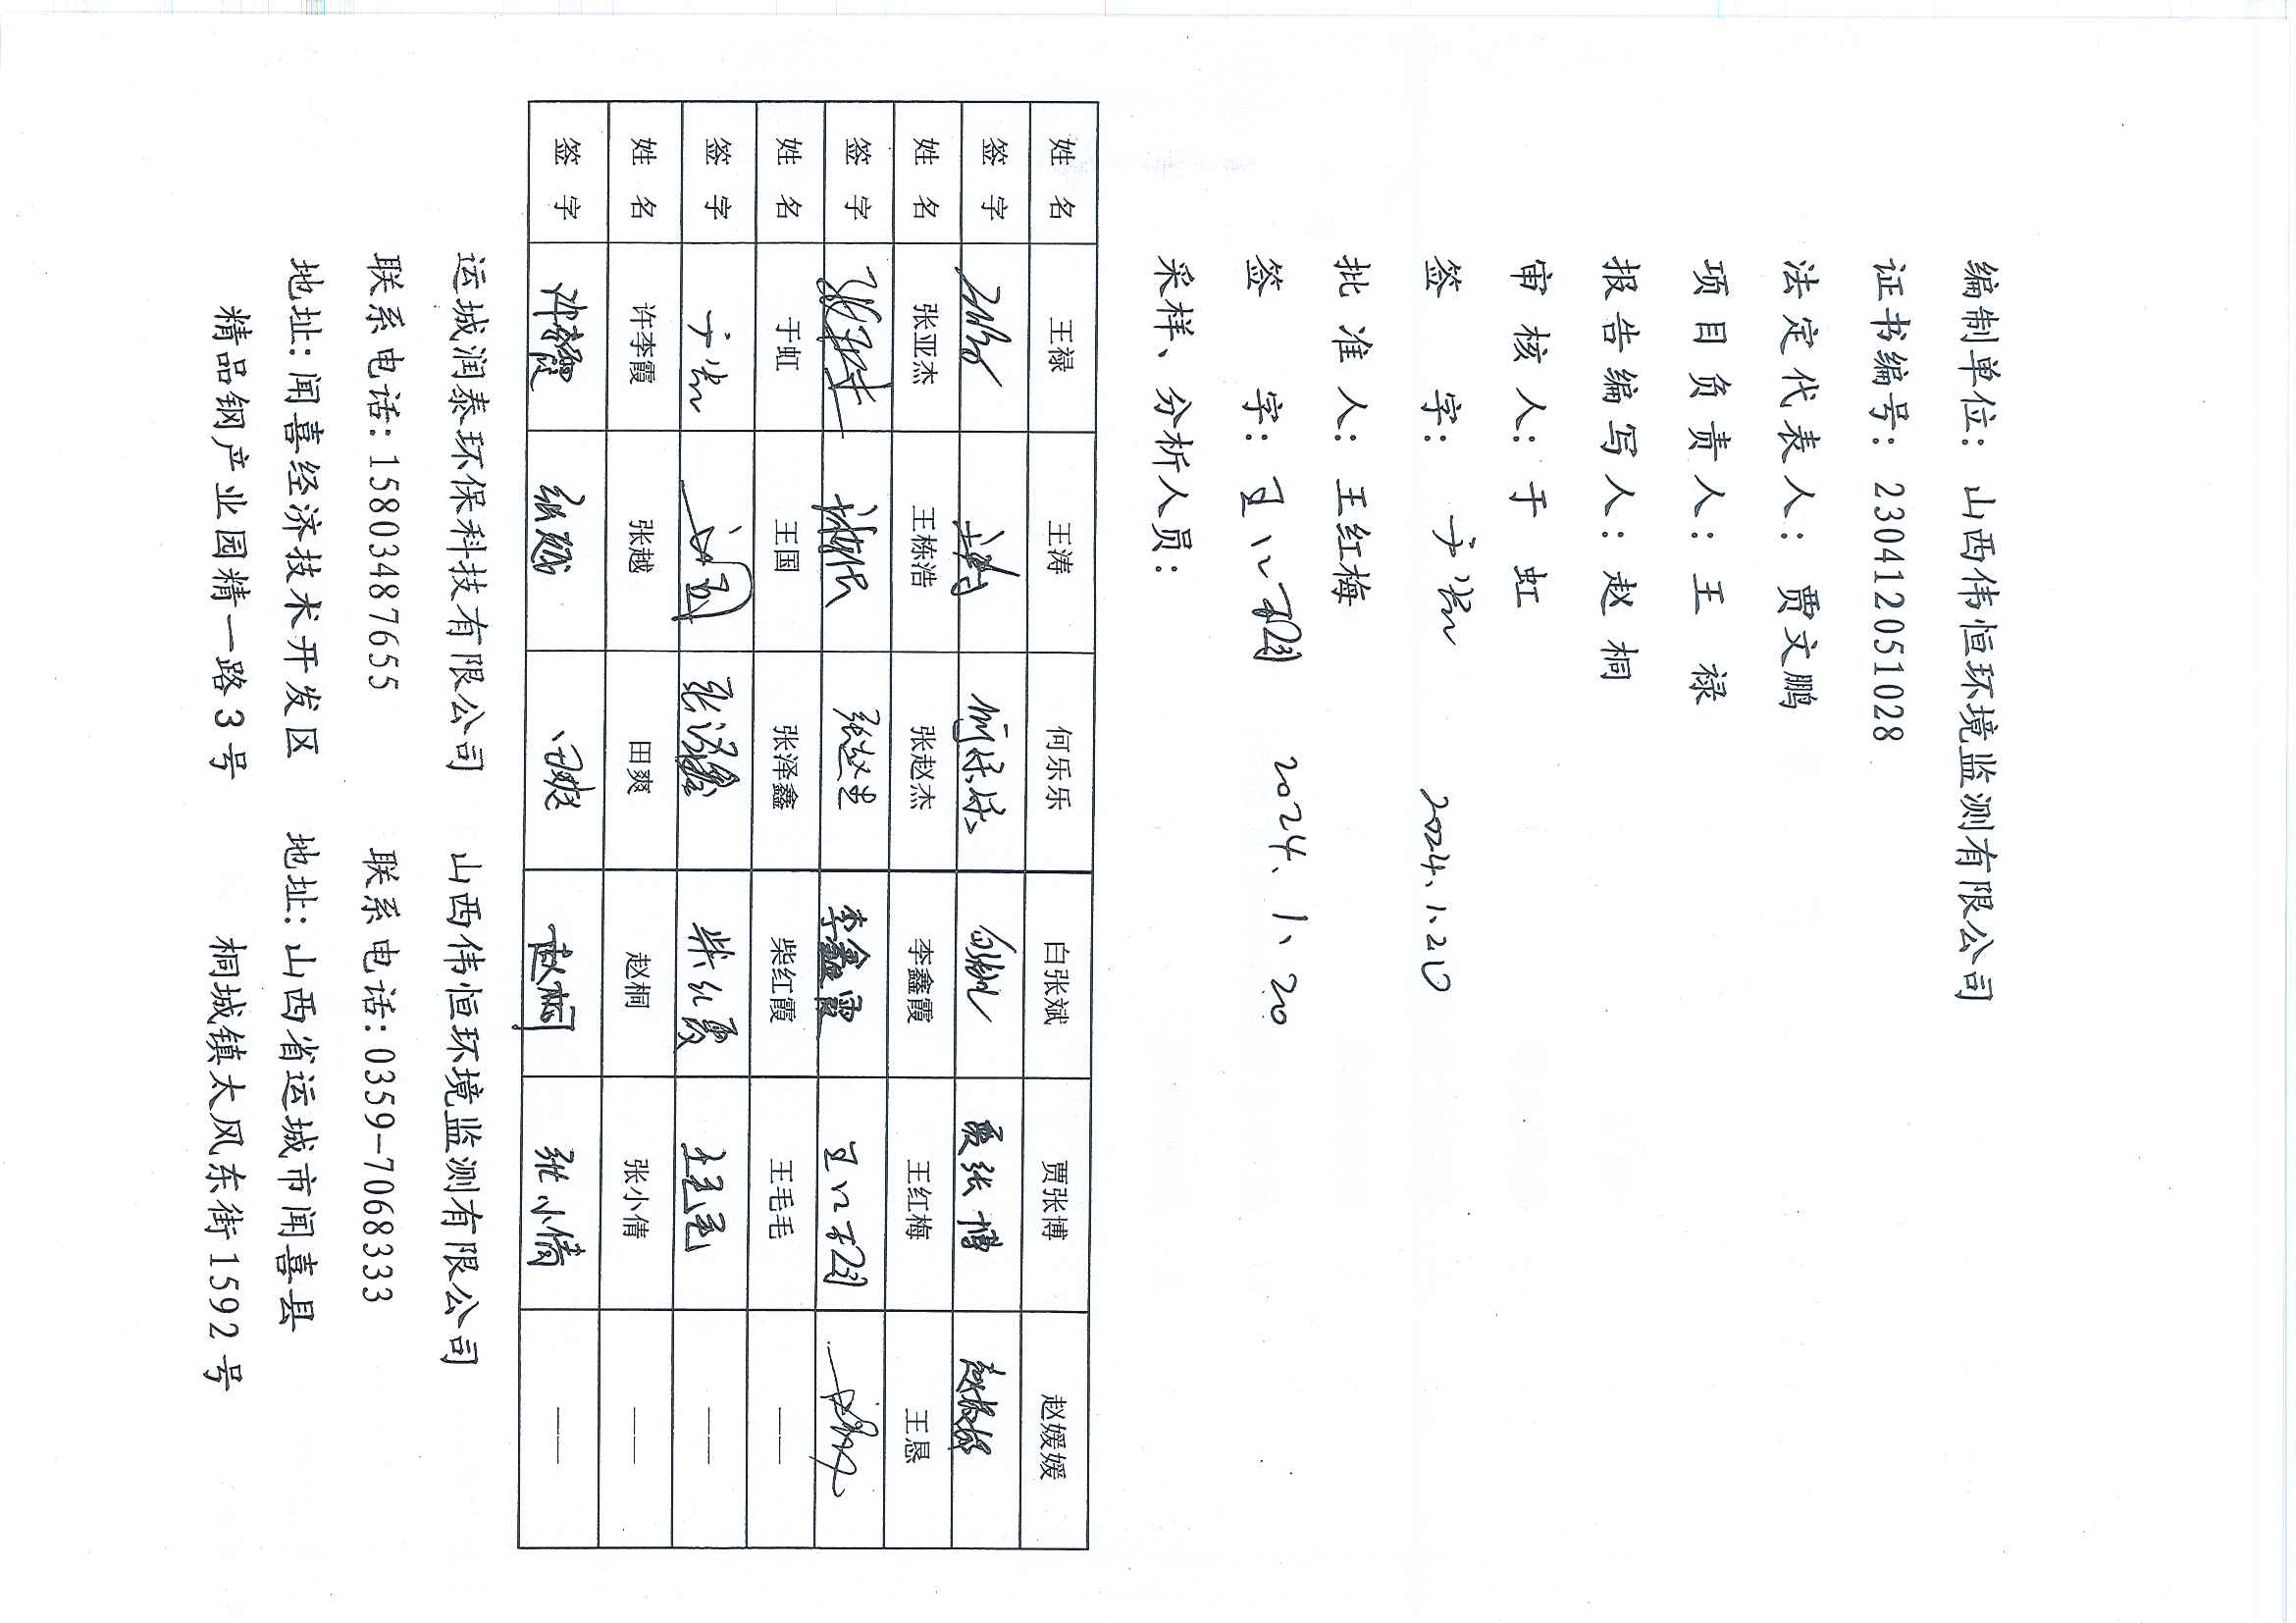 编制单位：山西伟恒环境监测有限公司
证书编号：230412051028
法定代表人：贾文鹏
项目负责人：王 禄
报告编写人：赵 桐
审核人：于 虹
签 字：于虹 2024.1.20
批准人：王红梅
签 字：王红梅 2024.1.20
采样、分析人员：
姓 名 王禄 王涛 何乐乐 白张斌 贾张博 赵媛媛
签 字 王禄 王涛 何乐乐 白张斌 贾张博 赵媛媛
姓 名 张亚杰 王栋浩 张赵杰 李鑫霞 王红梅 王恳
签 字 张亚杰 张赵杰 李鑫霞 王红梅
姓 名 于虹 王国 张泽鑫 柴红霞 王毛毛 ——
签 字 于虹 王国 张泽鑫 柴红霞 王毛毛 ——
姓 名 许李霞 张越 田爽 赵桐 张小倩 ——
签 字 许李霞 张越 田爽 赵桐 张小倩 ——
运城润泰环保科技有限公司 山西伟恒环境监测有限公司
联系电话：15803487655 联系电话：0359-7068333
地址：闻喜经济技术开发区 地址：山西省运城市闻喜县
精品钢产业园精一路3号 桐城镇太风东街1592号